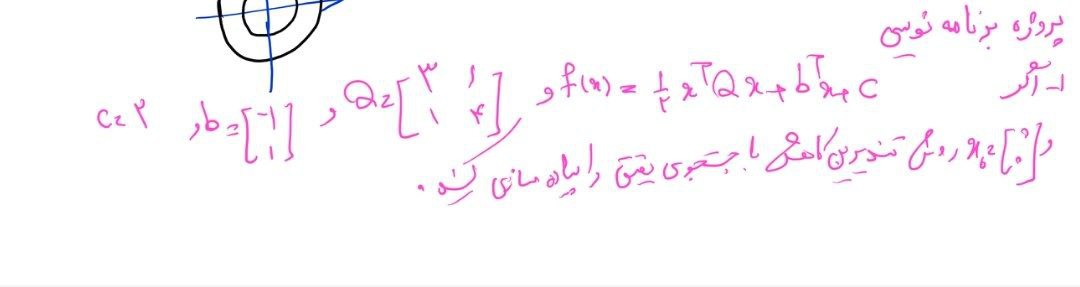 پروژه برنامه نویسی
۱- اگر f(x) = ½ xᵀQx + bᵀx + c و Q = [۳ ۱; ۱ ۴] و b = [-۱; ۱] و c = ۲
و x₀ = [۰; ۰] روش تندترین کاهش با جستجوی دقیق را پیاده سازی کنید.